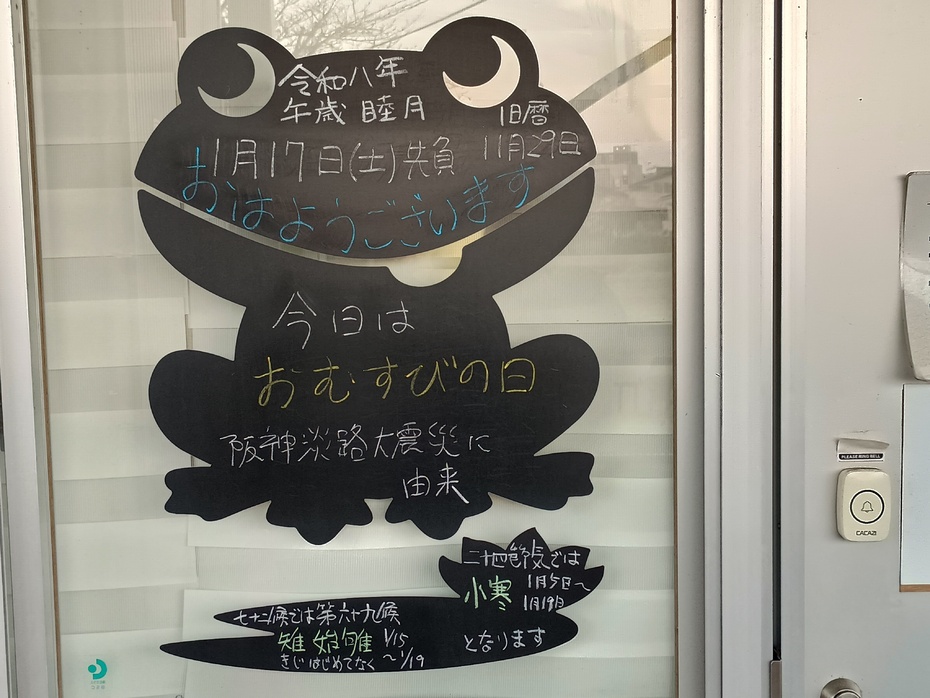 令和八年
午歳 睦月
旧暦
1月17日(土)先負 11月29日
おはようございます
今日は
おむすびの日
阪神淡路大震災に
由来
二十四節気では
小寒 1月5日〜
1月19日
となります
七十二候では第六十九候
雉始雊 1/15
きじはじめてなく 〜1/19
PLEASE RING BELL
CACAZI